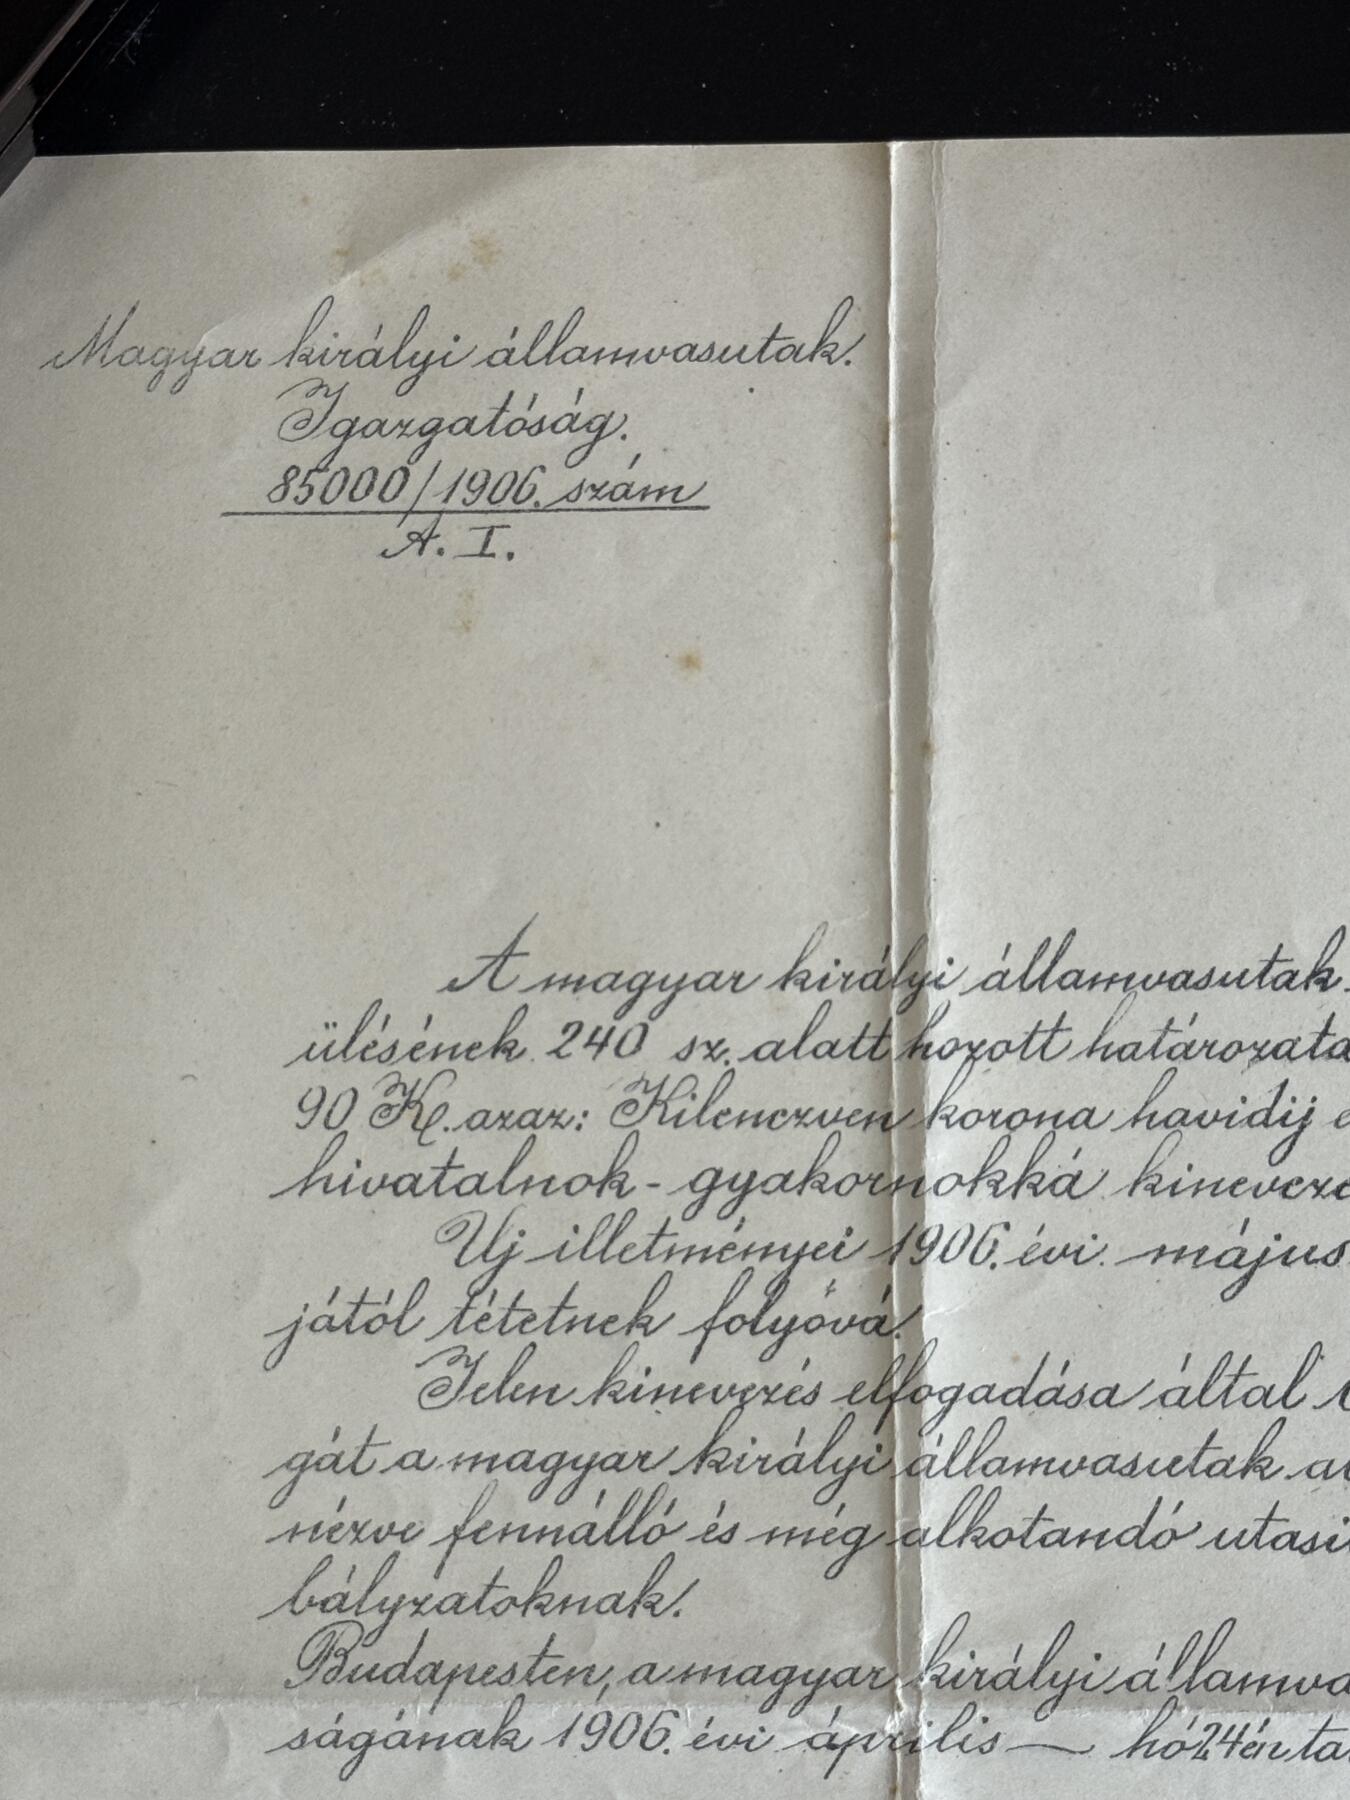 Magyar királyi államvasutak.
Igazgatóság.
85000/1906. szám
A. I.
A magyar királyi államvasutak
ülésének 240 sz. alatt hozott határozata
90 K. azaz: Kilenczven korona havidij
hivatalnok-gyakornokká kineveze
Uj illetményei 1906. évi május
jától tétetnek folyóvá.
Jelen kinevezés elfogadása által
gát a magyar királyi államvasutak
nézve fennálló és még alkotandó utasi
bályzatoknak.
Budapesten, a magyar királyi államva
ságának 1906. évi április — hó 24én ta